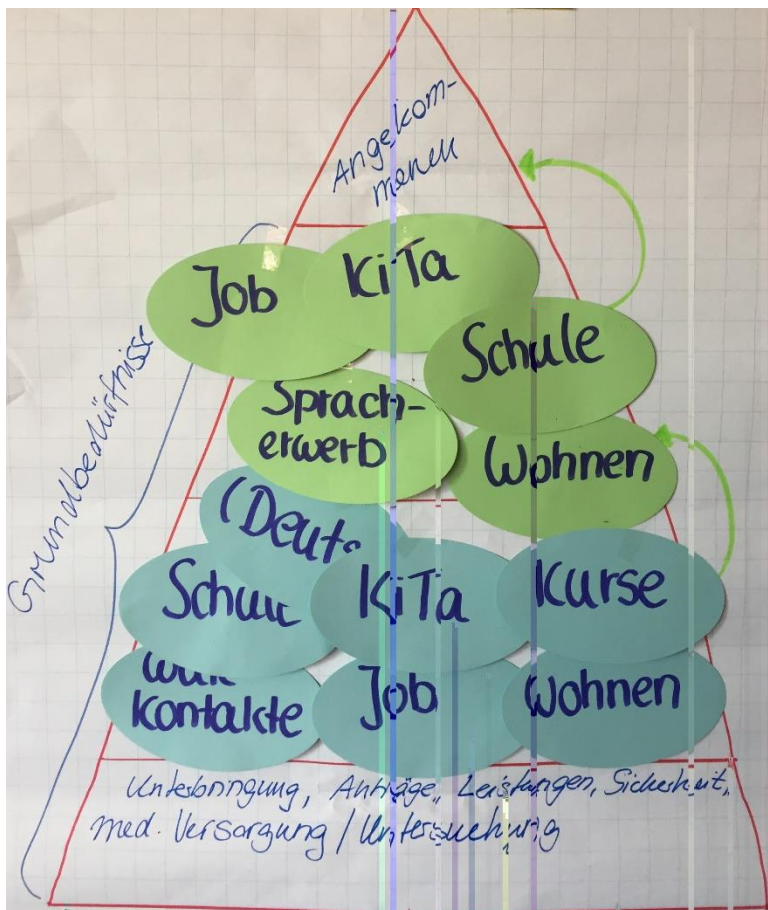 Angekom-
menen
Job
KiTa
Schule
Sprach-
erwerb
Wohnen
Grundbedürfnisse
(Deut
Schul
KiTa
Kurse
Kontakte
Job
Wohnen
Unterbringung, Anträge, Leistungen, Sicherheit,
med. Versorgung / Untersuchung